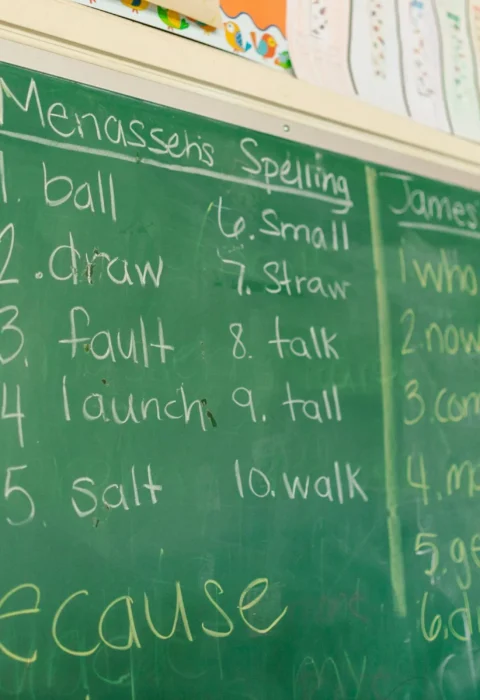 Menasseh's Spelling
1. ball
2. draw
3. fault
4 launch
5. salt
6. small
7. straw
8. talk
9. tall
10. walk
ecause
James'
1 who
2. now
3. com
4. m
5. ge
6. d